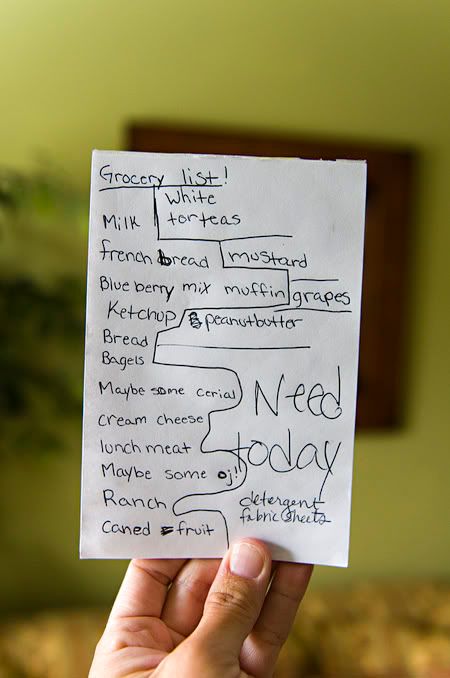 Grocery list!
White
torteas
Milk
french bread
mustard
Blueberry mix muffin
grapes
Ketchup
peanutbutter
Bread
Bagels
Maybe some cerial
Need
cream cheese
today
lunch meat
Maybe some oj!!
Ranch
detergent
fabric sheets
Caned fruit